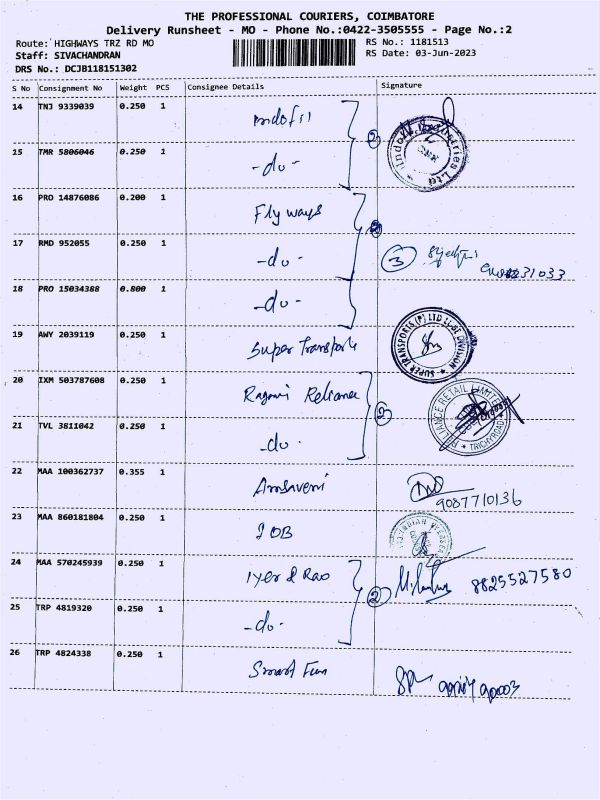 THE PROFESSIONAL COURIERS, COIMBATORE
Delivery Runsheet - MO - Phone No.:0422-3505555 - Page No.:2
Route: HIGHWAYS TRZ RD MO RS No.: 1181513
Staff: SIVACHANDRAN RS Date: 03-Jun-2023
DRS No.: DCJB118151302
S No Consignment No Weight PCS Consignee Details Signature
14 TNJ 9339039 0.250 1 Indofil
2
15 TMR 5806046 0.250 1 -do-
16 PRO 14876086 0.200 1 Fly ways
17 RMD 952055 0.250 1 -do- 3
18 PRO 15034388 0.800 1 -do-
19 AWY 2039119 0.250 1 Super Transports
SUPER TRANSPORTS (P) LTD LUBE DIVISION
20 IXM 503787608 0.250 1 Ragavi Reliance
2
RELIANCE RETAIL LIMITED
TRICHY ROAD
21 TVL 3811042 0.250 1 -do-
22 MAA 100362737 0.355 1 Amsaveni
9087710136
23 MAA 860181804 0.250 1 IOB
24 MAA 570245939 0.250 1 Iyer & Rao
2 8825527580
25 TRP 4819320 0.250 1 -do-
26 TRP 4824338 0.250 1 Smart Fun